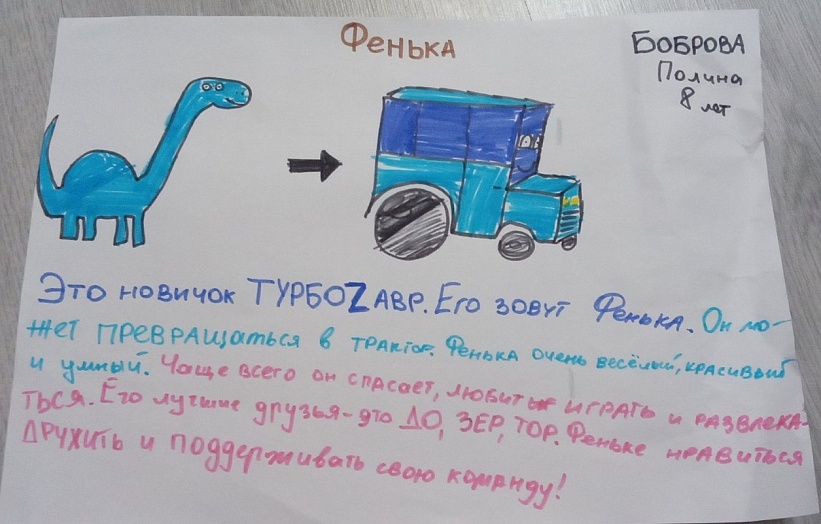 Фенька
БОБРОВА
Полина
8 лет
Это новичок ТУРБОZАВР. Его зовут Фенька. Он мо-
жет превращаться в трактор. Фенька очень весёлый, красивый
и умный. Чаще всего он спасает, любит играть и развлека-
ться. Его лучшие друзья - это ДО, ЗЕР, ТОР. Феньке нравиться
дружить и поддерживать свою команду!